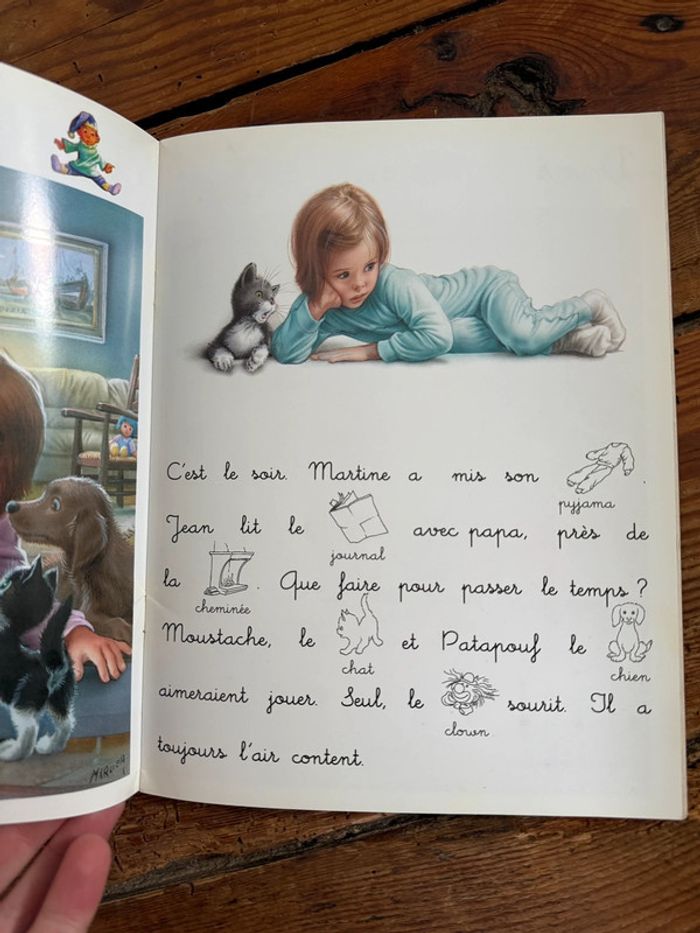 C'est le soir. Martine a mis son .
pyjama
Jean lit le avec papa, près de
journal
la . Que faire pour passer le temps ?
cheminée
Moustache, le et Patapouf le
chat
chien
aimeraient jouer. Seul, le sourit. Il a
clown
toujours l'air content.